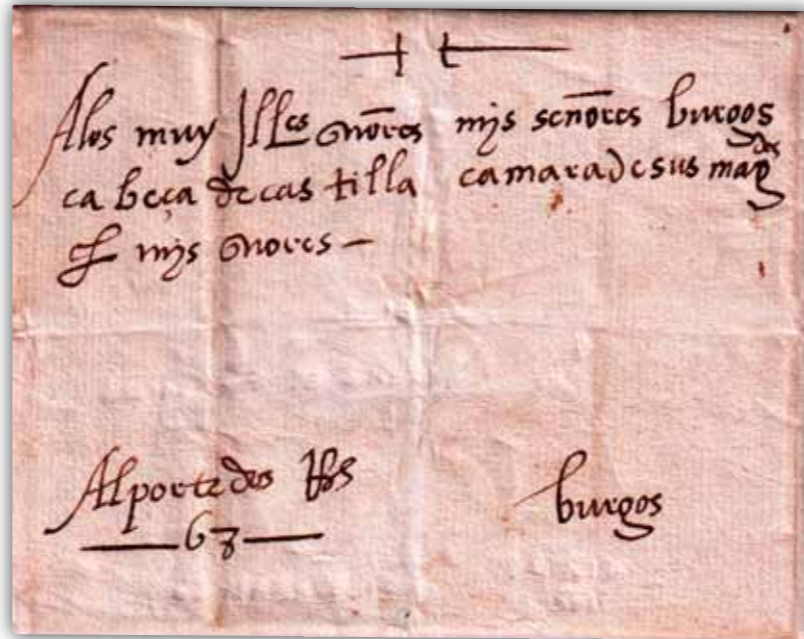 A los muy Illes señores mis señores burgos
cabeça de castilla camara de sus magdes
mis señores
Al porte dos Rs
68
burgos